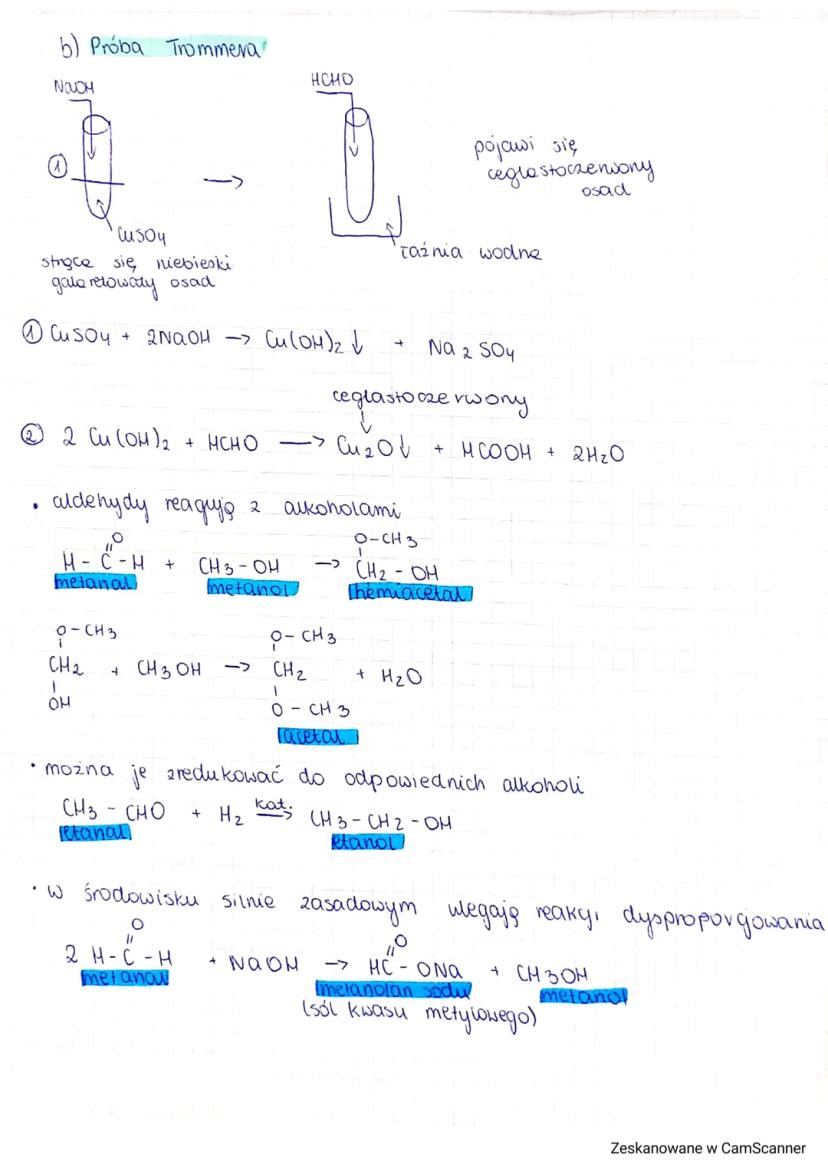 b) Próba Trommera
NaOH
HCHO
①
→
pojawi się
ceglastoczerwony
osad
CuSO4
łaźnia wodna
strąca się niebieski
galaretowaty osad
① CuSO4 + 2NaOH → Cu(OH)2 ↓ + Na2SO4
ceglastoczerwony
↓
② 2 Cu(OH)2 + HCHO → Cu2O↓ + HCOOH + 2H2O
• aldehydy reagują z alkoholami
O O-CH3
H - C - H + CH3-OH → CH2 - OH
metanal metanol hemiacetal
O-CH3 O-CH3
CH2 + CH3OH → CH2 + H2O
OH O-CH3
acetal
• można je zredukować do odpowiednich alkoholi
CH3 - CHO + H2 kat. → CH3-CH2-OH
etanal etanol
• w środowisku silnie zasadowym ulegają reakcji dysproporcjowania
O O
2 H-C-H + NaOH → HC-ONa + CH3OH
metanal metanolan sodu metanol
(sól kwasu metylowego)
Zeskanowane w CamScanner